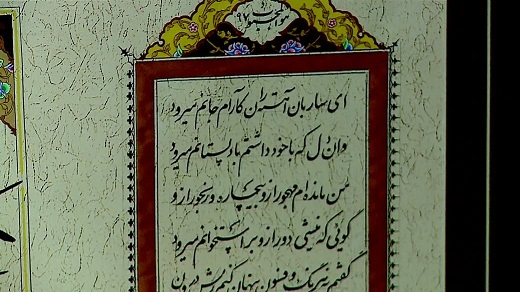 ای ساربان آهسته ران کآرام جانم میرود
وان دل که با خود داشتم با دلستانم میرود
من مانده‌ام مهجور از و بیچاره و رنجور از و
گویی که نیشی دور از و بر استخوانم میرود
گفتم به نیرنگ و فسون پنهان کنم ریش درون